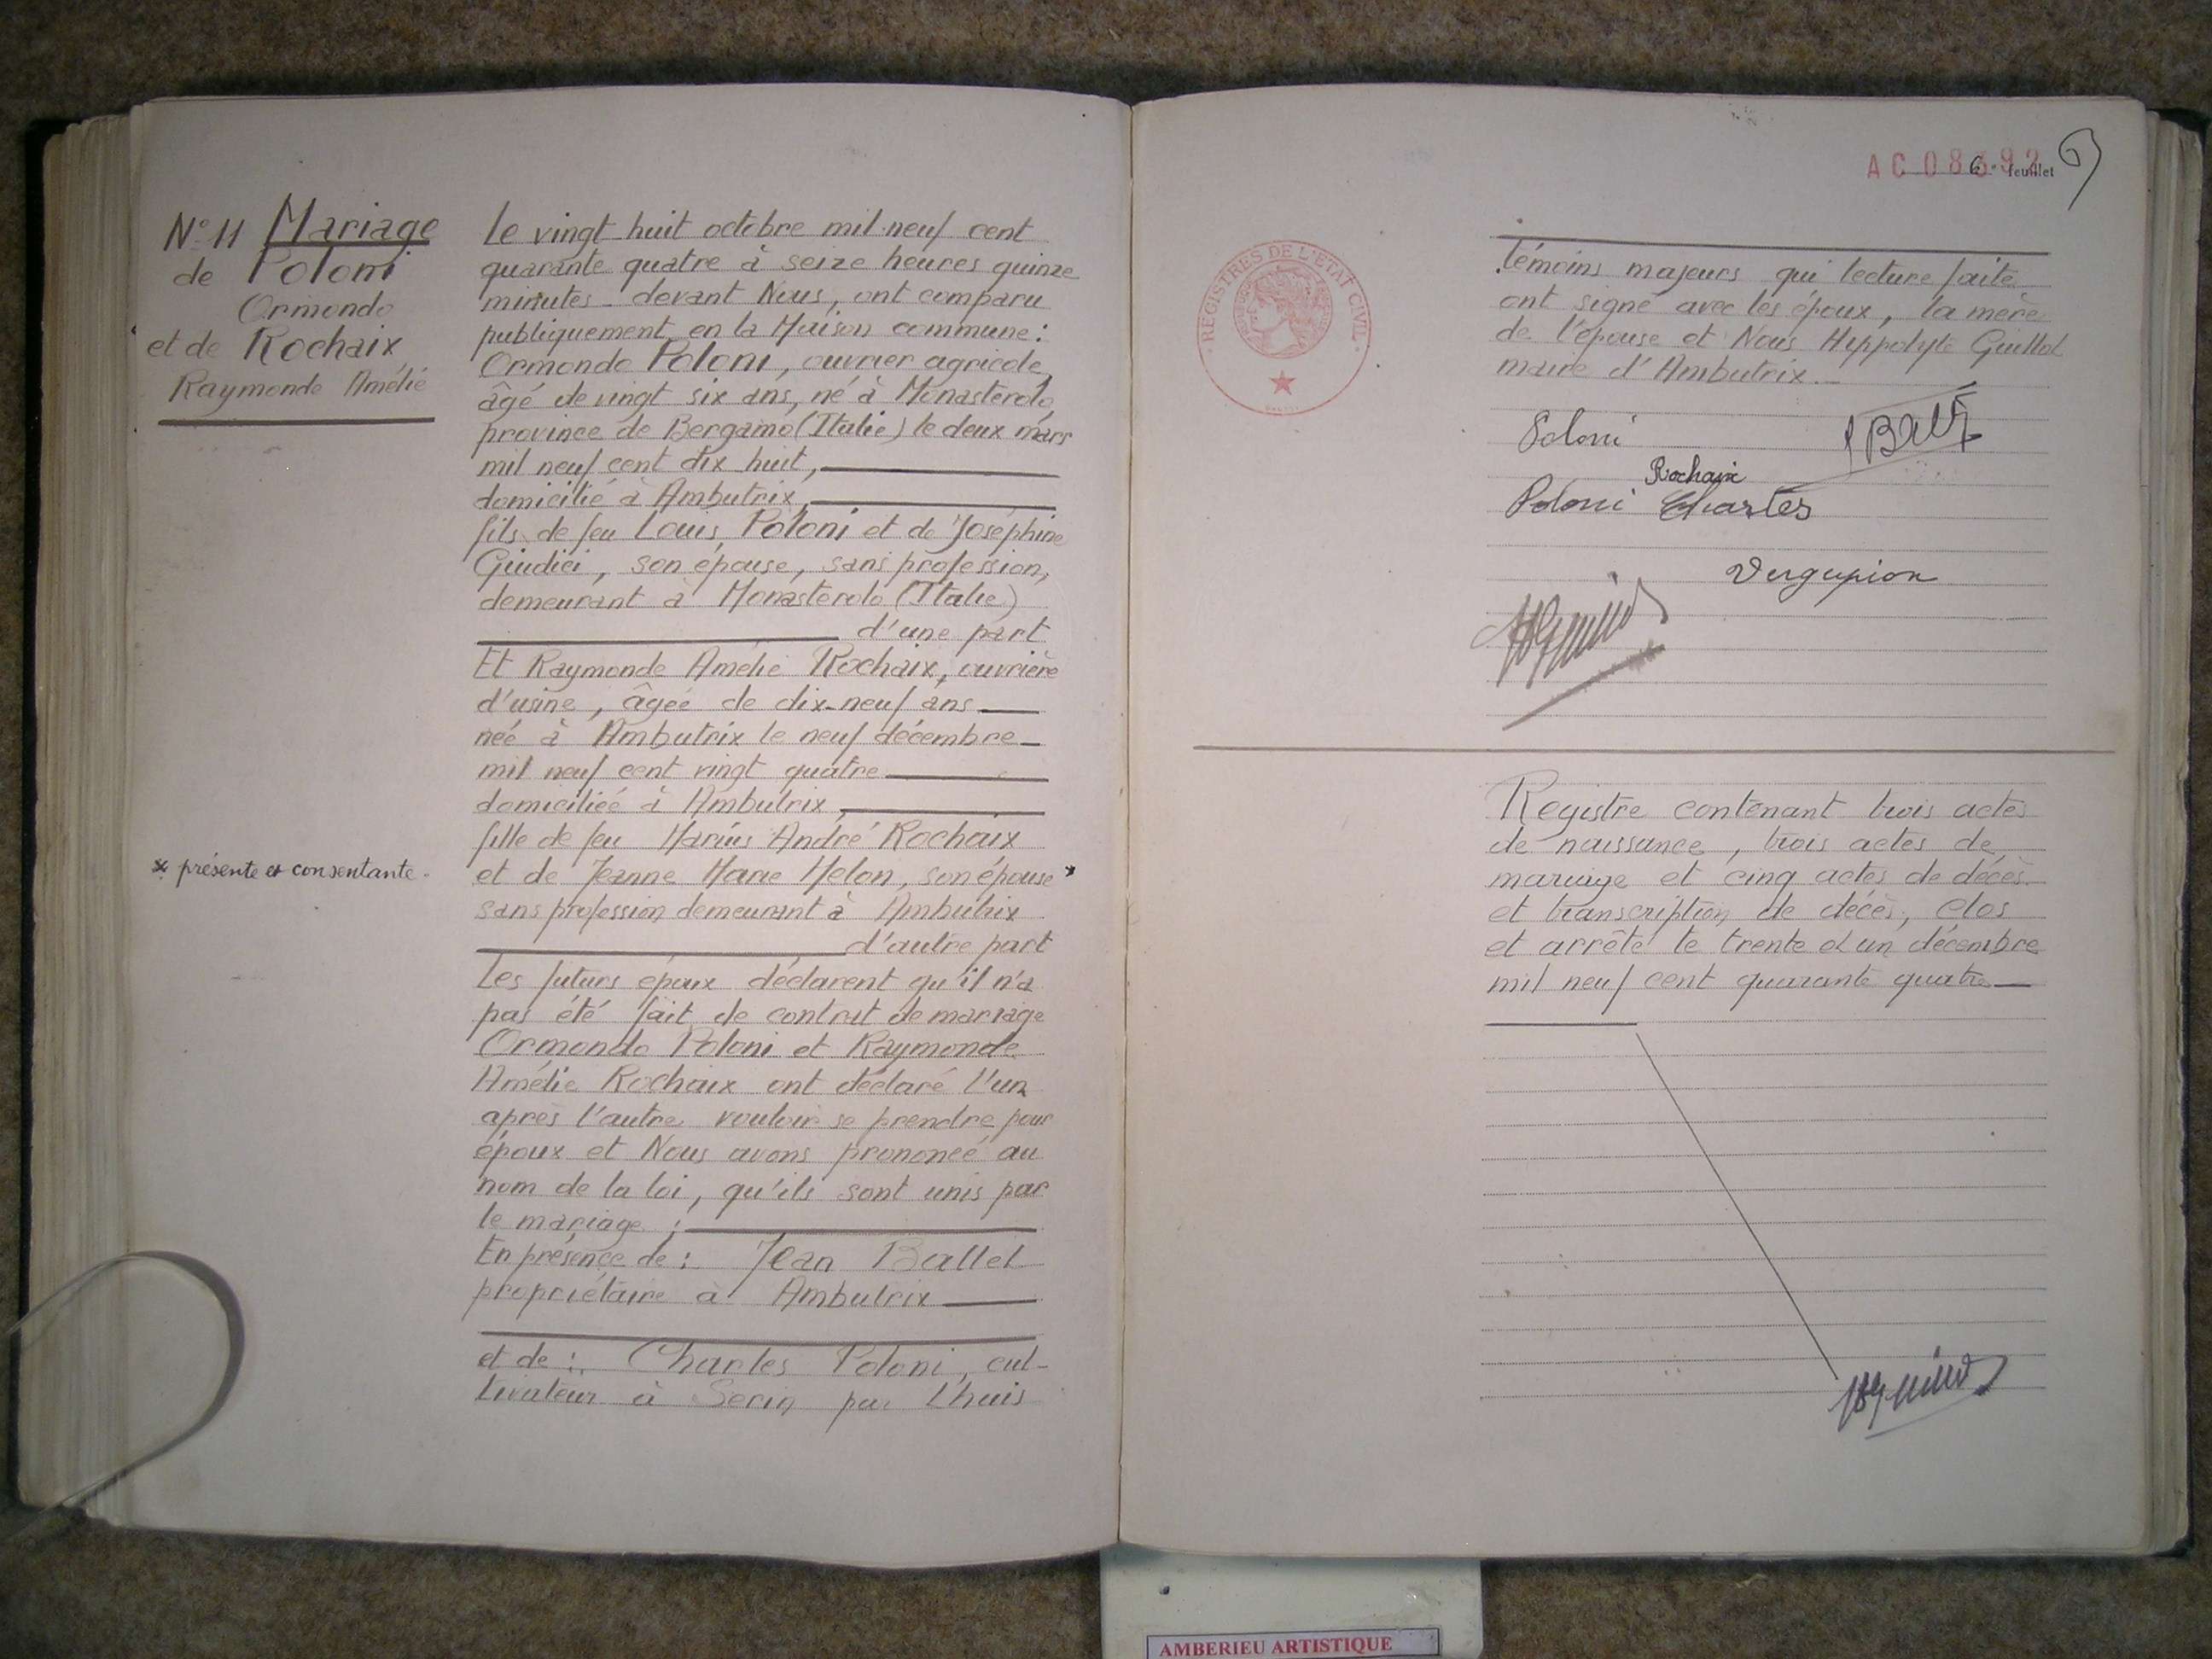 N° 11 Mariage
de Poloni
Ormondo
et de Rochaix
Raymonde Amélie
* présente et consentante -
Le vingt huit octobre mil neuf cent
quarante quatre à seize heures quinze
minutes devant Nous, ont comparu
publiquement en la Maison commune :
Ormondo Poloni, ouvrier agricole,
âgé de vingt six ans, né à Monasterolo
province de Bergamo (Italie) le deux mars
mil neuf cent dix huit,
domicilié à Ambutrix,
fils de feu Louis Poloni et de Joséphine
Giudici, son épouse, sans profession,
demeurant à Monasterolo (Italie)
d'une part
Et Raymonde Amélie Rochaix, ouvrière
d'usine, âgée de dix-neuf ans
née à Ambutrix le neuf décembre
mil neuf cent vingt quatre
domiciliée à Ambutrix,
fille de feu Marius André Rochaix
et de Jeanne Marie Melon, son épouse *
sans profession demeurant à Ambutrix
d'autre part
Les futurs époux déclarent qu'il n'a
pas été fait de contrat de mariage
Ormondo Poloni et Raymonde
Amélie Rochaix ont déclaré l'un
après l'autre vouloir se prendre pour
époux et Nous avons prononcé au
nom de la loi, qu'ils sont unis par
le mariage ;
En présence de : Jean Ballet
propriétaire à Ambutrix
et de : Charles Poloni, cul-
tivateur à Serin par Lhuis
AC 08392
6e feuillet
REGISTRES DE L'ETAT CIVIL
témoins majeurs qui lecture faite
ont signé avec les époux, la mère
de l'épouse et Nous Hippolyte Guillot
maire d'Ambutrix.
Poloni
Rochaix
Poloni Charles
Registre contenant trois actes
de naissance, trois actes de
mariage et cinq actes de décès
et transcription de décès, clos
et arrêté le trente et un décembre
mil neuf cent quarante quatre
AMBERIEU ARTISTIQUE